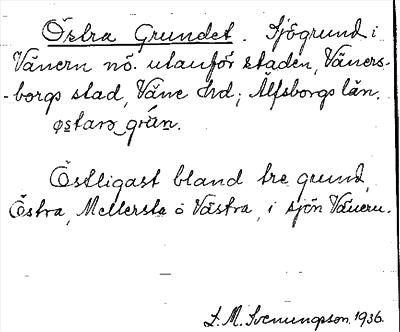 Östra Grundet. Sjögrund i
Vänern nö. utanför staden, Väners-
-borgs stad, Väne hd; Älfsborgs län.
östligast bland tre grund,
Östra, Mellersta o Västra, i sjön Vänern.
L. M. Svenungsson 1936.